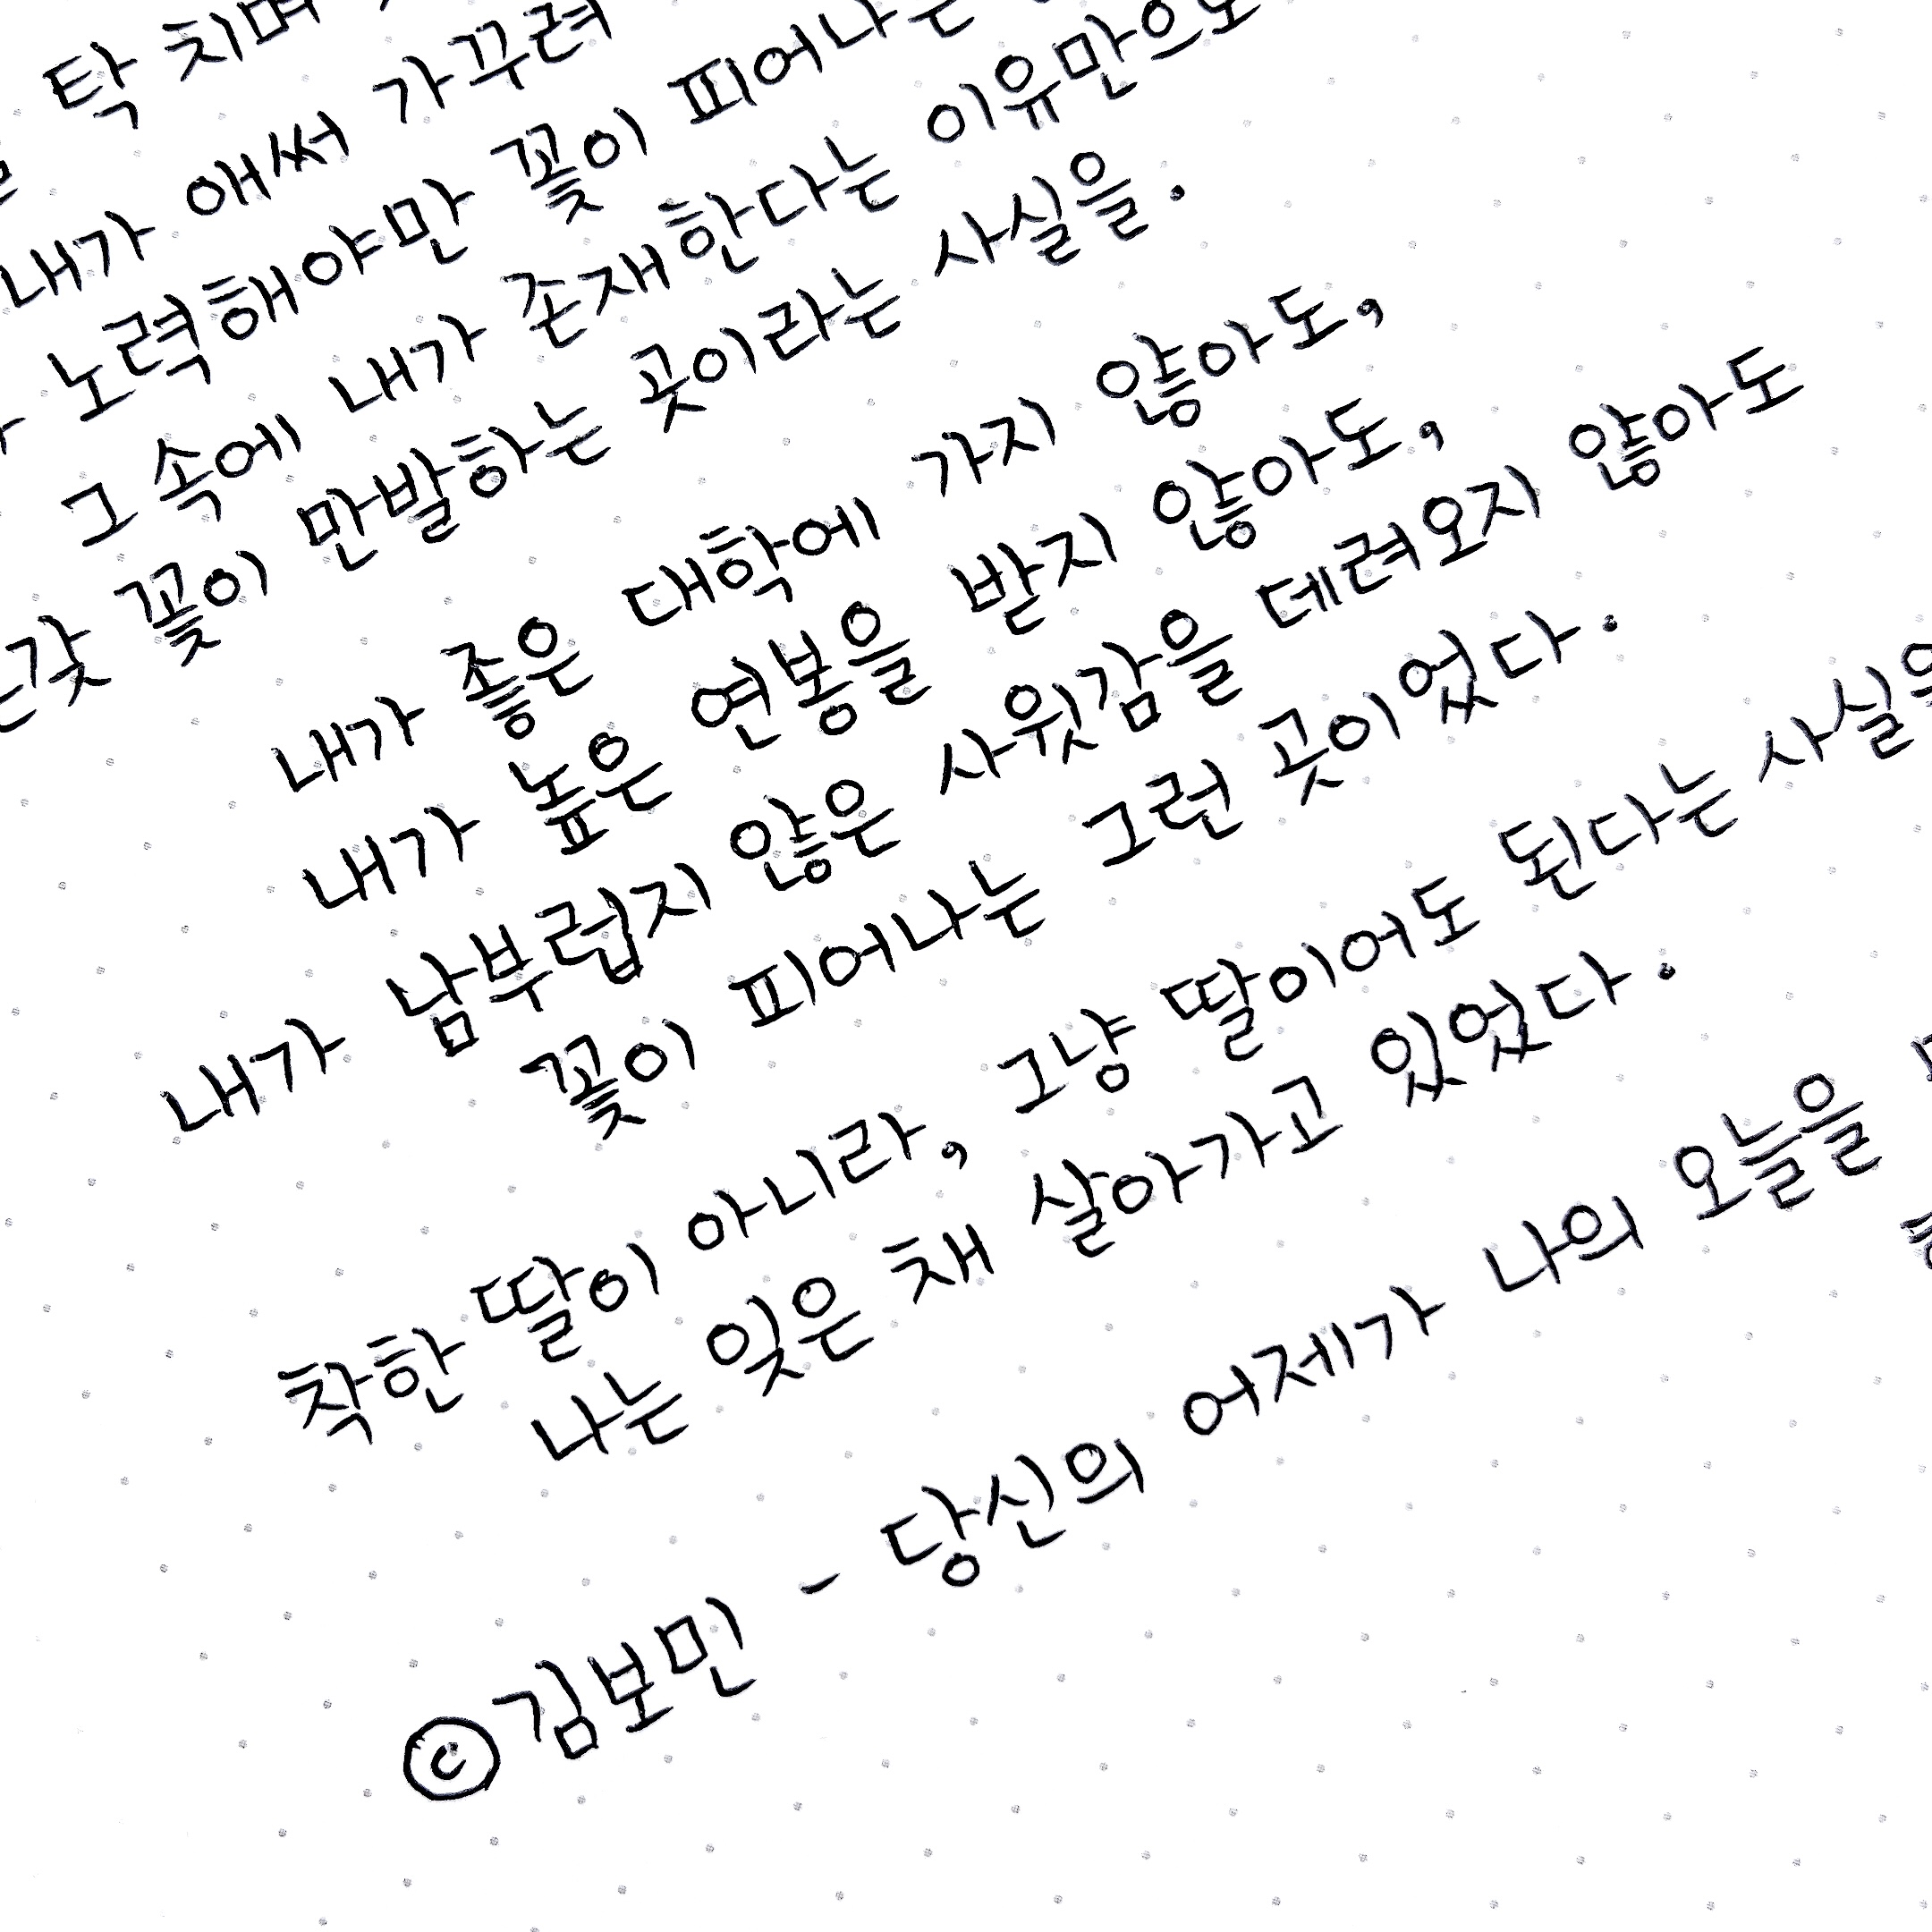 탁 치며
내가 애써 가꾸려
노력해야만 꽃이 피어나는
그 속에 내가 존재한다는 이유만으로
갖 꽃이 만발하는 곳이라는 사실을.
내가 좋은 대학에 가지 않아도,
내가 높은 연봉을 받지 않아도,
내가 남부럽지 않은 사윗감을 데려오지 않아도
꽃이 피어나는 그런 곳이었다.
착한 딸이 아니라, 그냥 딸이어도 된다는 사실을
나는 잊은 채 살아가고 있었다.
©김보민 - 당신의 어제가 나의 오늘을